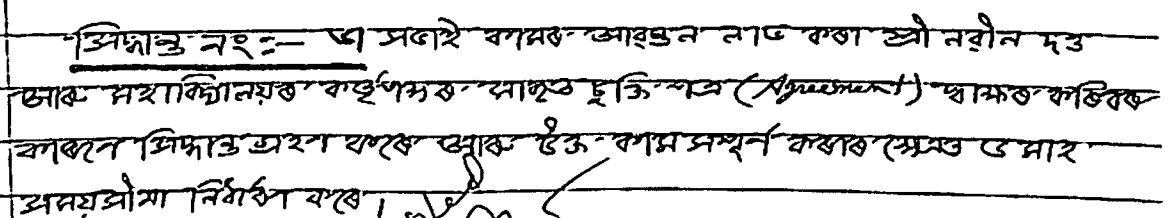 সিদ্ধান্ত নং :— ৩। প্ৰস্তাৱ কামৰ আৱণ্টন লাভ কৰা শ্ৰী নবীন দত্ত
আৰু মহাবিদ্যালয়ৰ কৰ্তৃপক্ষৰ মাজত চুক্তি পত্ৰ (Agreement) স্বাক্ষৰ কৰিবৰ
কাৰণে সিদ্ধান্ত গ্ৰহণ কৰে আৰু উক্ত কাম সম্পূৰ্ণ কৰাৰ ক্ষেত্ৰত ৩ মাহ
সময়সীমা নিৰ্ধাৰণ কৰে।